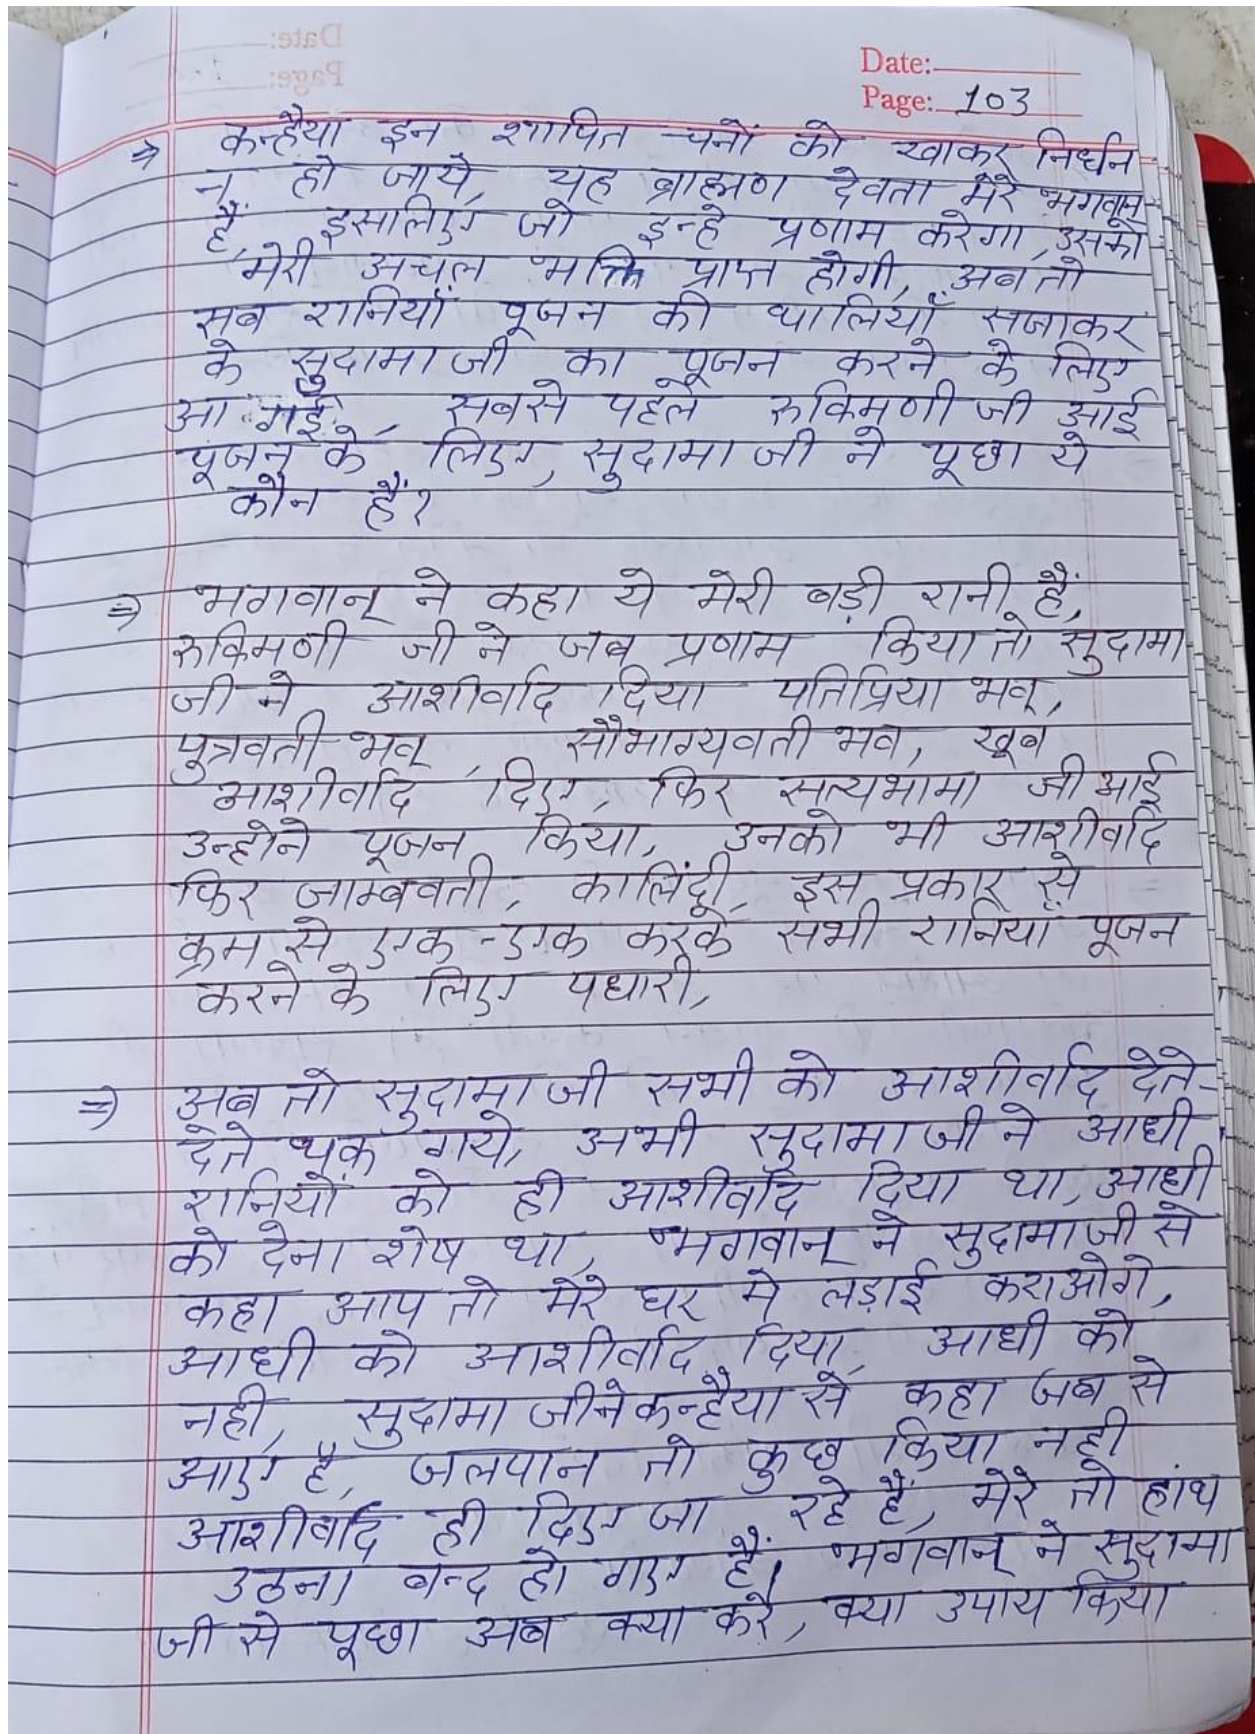 Date:
Page: 103
⇒ कन्हैया इन शापित चनों को खाकर निर्धन
न हो जाये, यह ब्राह्मण देवता मेरे भगवान
हैं, इसलिए जो इन्हे प्रणाम करेगा, उसको
मेरी अचल भक्ति प्राप्त होगी, अब तो
सब रानियाँ पूजन की थालियाँ सजाकर
के सुदामा जी का पूजन करने के लिए
आ गई, सबसे पहले रुक्मिणी जी आई
पूजन के लिए, सुदामा जी ने पूछा ये
कौन हैं?
⇒ भगवान् ने कहा ये मेरी बड़ी रानी हैं,
रुक्मिणी जी ने जब प्रणाम किया तो सुदामा
जी ने आशीर्वाद दिया पतिप्रिया भव्,
पुत्रवती भव्, सौभाग्यवती भव, खूब
आशीर्वाद दिए, फिर सत्यभामा जी आई
उन्होने पूजन किया, उनको भी आशीर्वाद
फिर जाम्बवती, कालिंदी, इस प्रकार से
क्रम से एक-एक करके सभी रानियाँ पूजन
करने के लिए पधारी,
⇒ अब तो सुदामा जी सभी को आशीर्वाद देते-
देते थक गये, अभी सुदामा जी ने आधी
रानियों को ही आशीर्वाद दिया था, आधी
को देना शेष था, भगवान् ने सुदामा जी से
कहा आप तो मेरे घर मे लड़ाई कराओगे,
आधी को आशीर्वाद दिया, आधी को
नही, सुदामा जी ने कन्हैया से कहा जब से
आए है, जलपान तो कुछ किया नही
आशीर्वाद ही दिए जा रहे हैं, मेरे तो हांथ
उठना बन्द हो गए हैं, भगवान् ने सुदामा
जी से पूछा अब क्या करे, क्या उपाय किया